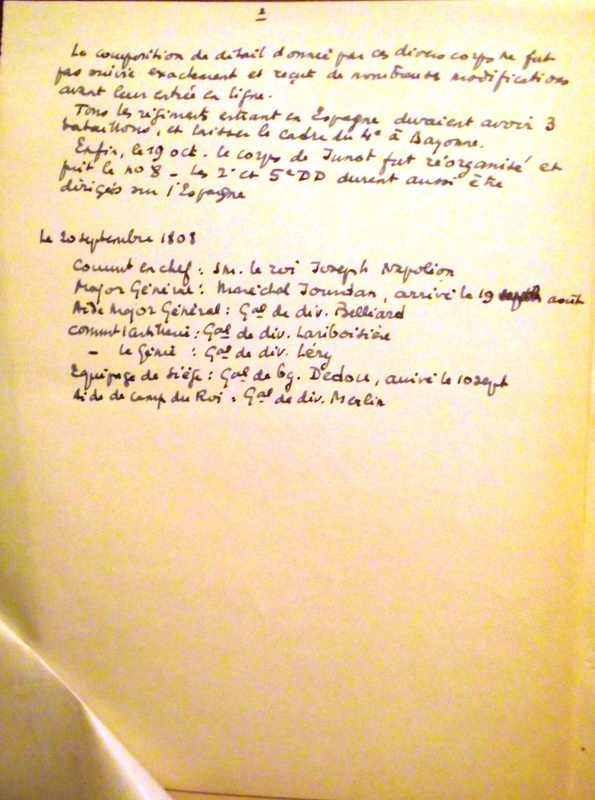 2
La composition de détail donnée par ces divers corps ne fut
pas suivie exactement et reçut de nombreuses modifications
avant leur entrée en ligne.
Tous les régiments entrant en Espagne devaient avoir 3
bataillons, et laisser le cadre du 4e à Bayonne.
Enfin, le 19 oct. le corps de Junot fut réorganisé et
prit le no 8 - Les 2e et 5e DD durent aussi être
dirigés sur l'Espagne
Le 20 septembre 1808
Commt en chef : SM. le roi Joseph Napoléon
Major Général : Maréchal Jourdan, arrivé le 19 août
Aide Major Général : Gal de div. Belliard
Commt l'artillerie : Gal de div. Lariboisière
- le Génie : Gal de div. Léry
Equipage de siège : Gal de bg. Dedon, arrivé le 10 sept
Aide de camp du Roi : Gal de div. Merlin